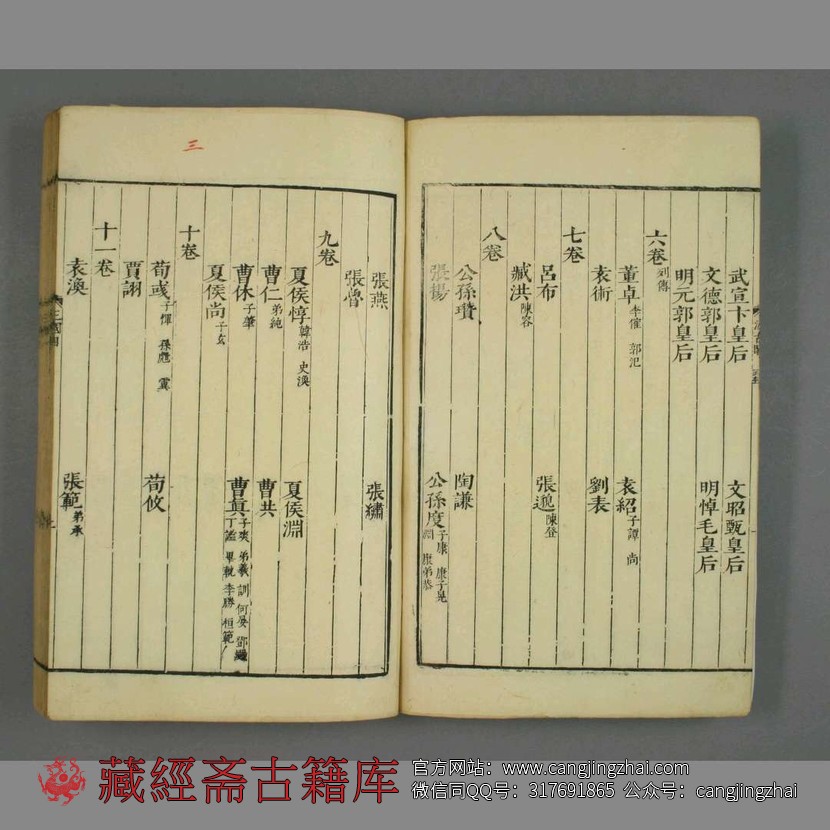 武宣卞皇后 文昭甄皇后
文德郭皇后 明悼毛皇后
明元郭皇后
六卷 列傳
董卓 李傕 郭汜 袁紹 子譚 尚
袁術 劉表
七卷
呂布 張邈 陳登
臧洪 陳容
八卷
公孫瓚 陶謙
張楊 公孫度 子康 康子晃 淵 康弟恭
張燕 張繡
張魯
九卷
夏侯惇 韓浩 史渙 夏侯淵
曹仁 弟純 曹洪
曹休 子肇 曹真 子爽 弟羲 訓 何晏 鄧颺 丁謐 畢軌 李勝 桓範
夏侯尚 子玄
十卷
荀彧 子惲 孫甝 霬 荀攸
賈詡
十一卷
袁渙 張範 弟承
三
藏經斋古籍库
官方网站：www.cangjingzhai.com
微信同QQ号：317691865 公众号：cangjingzhai